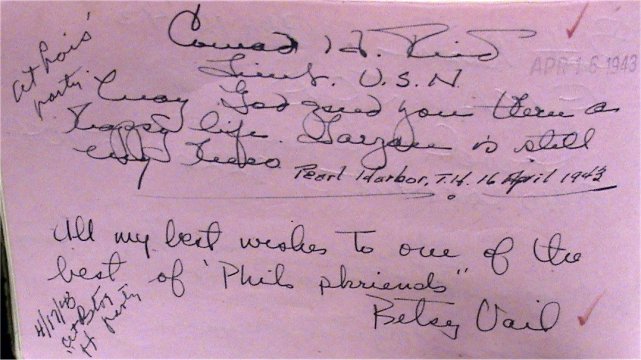 at Lois'
party.
Conrad H.
Lieut. U.S.N.
APR 16 1943
May God send you them a
happy life. Tarzan is still
my hero
Pearl Harbor, T.H. 16 April 1943
All my best wishes to one of the
best of "Phils phriends"
Betsy Vail
4/17/43
party